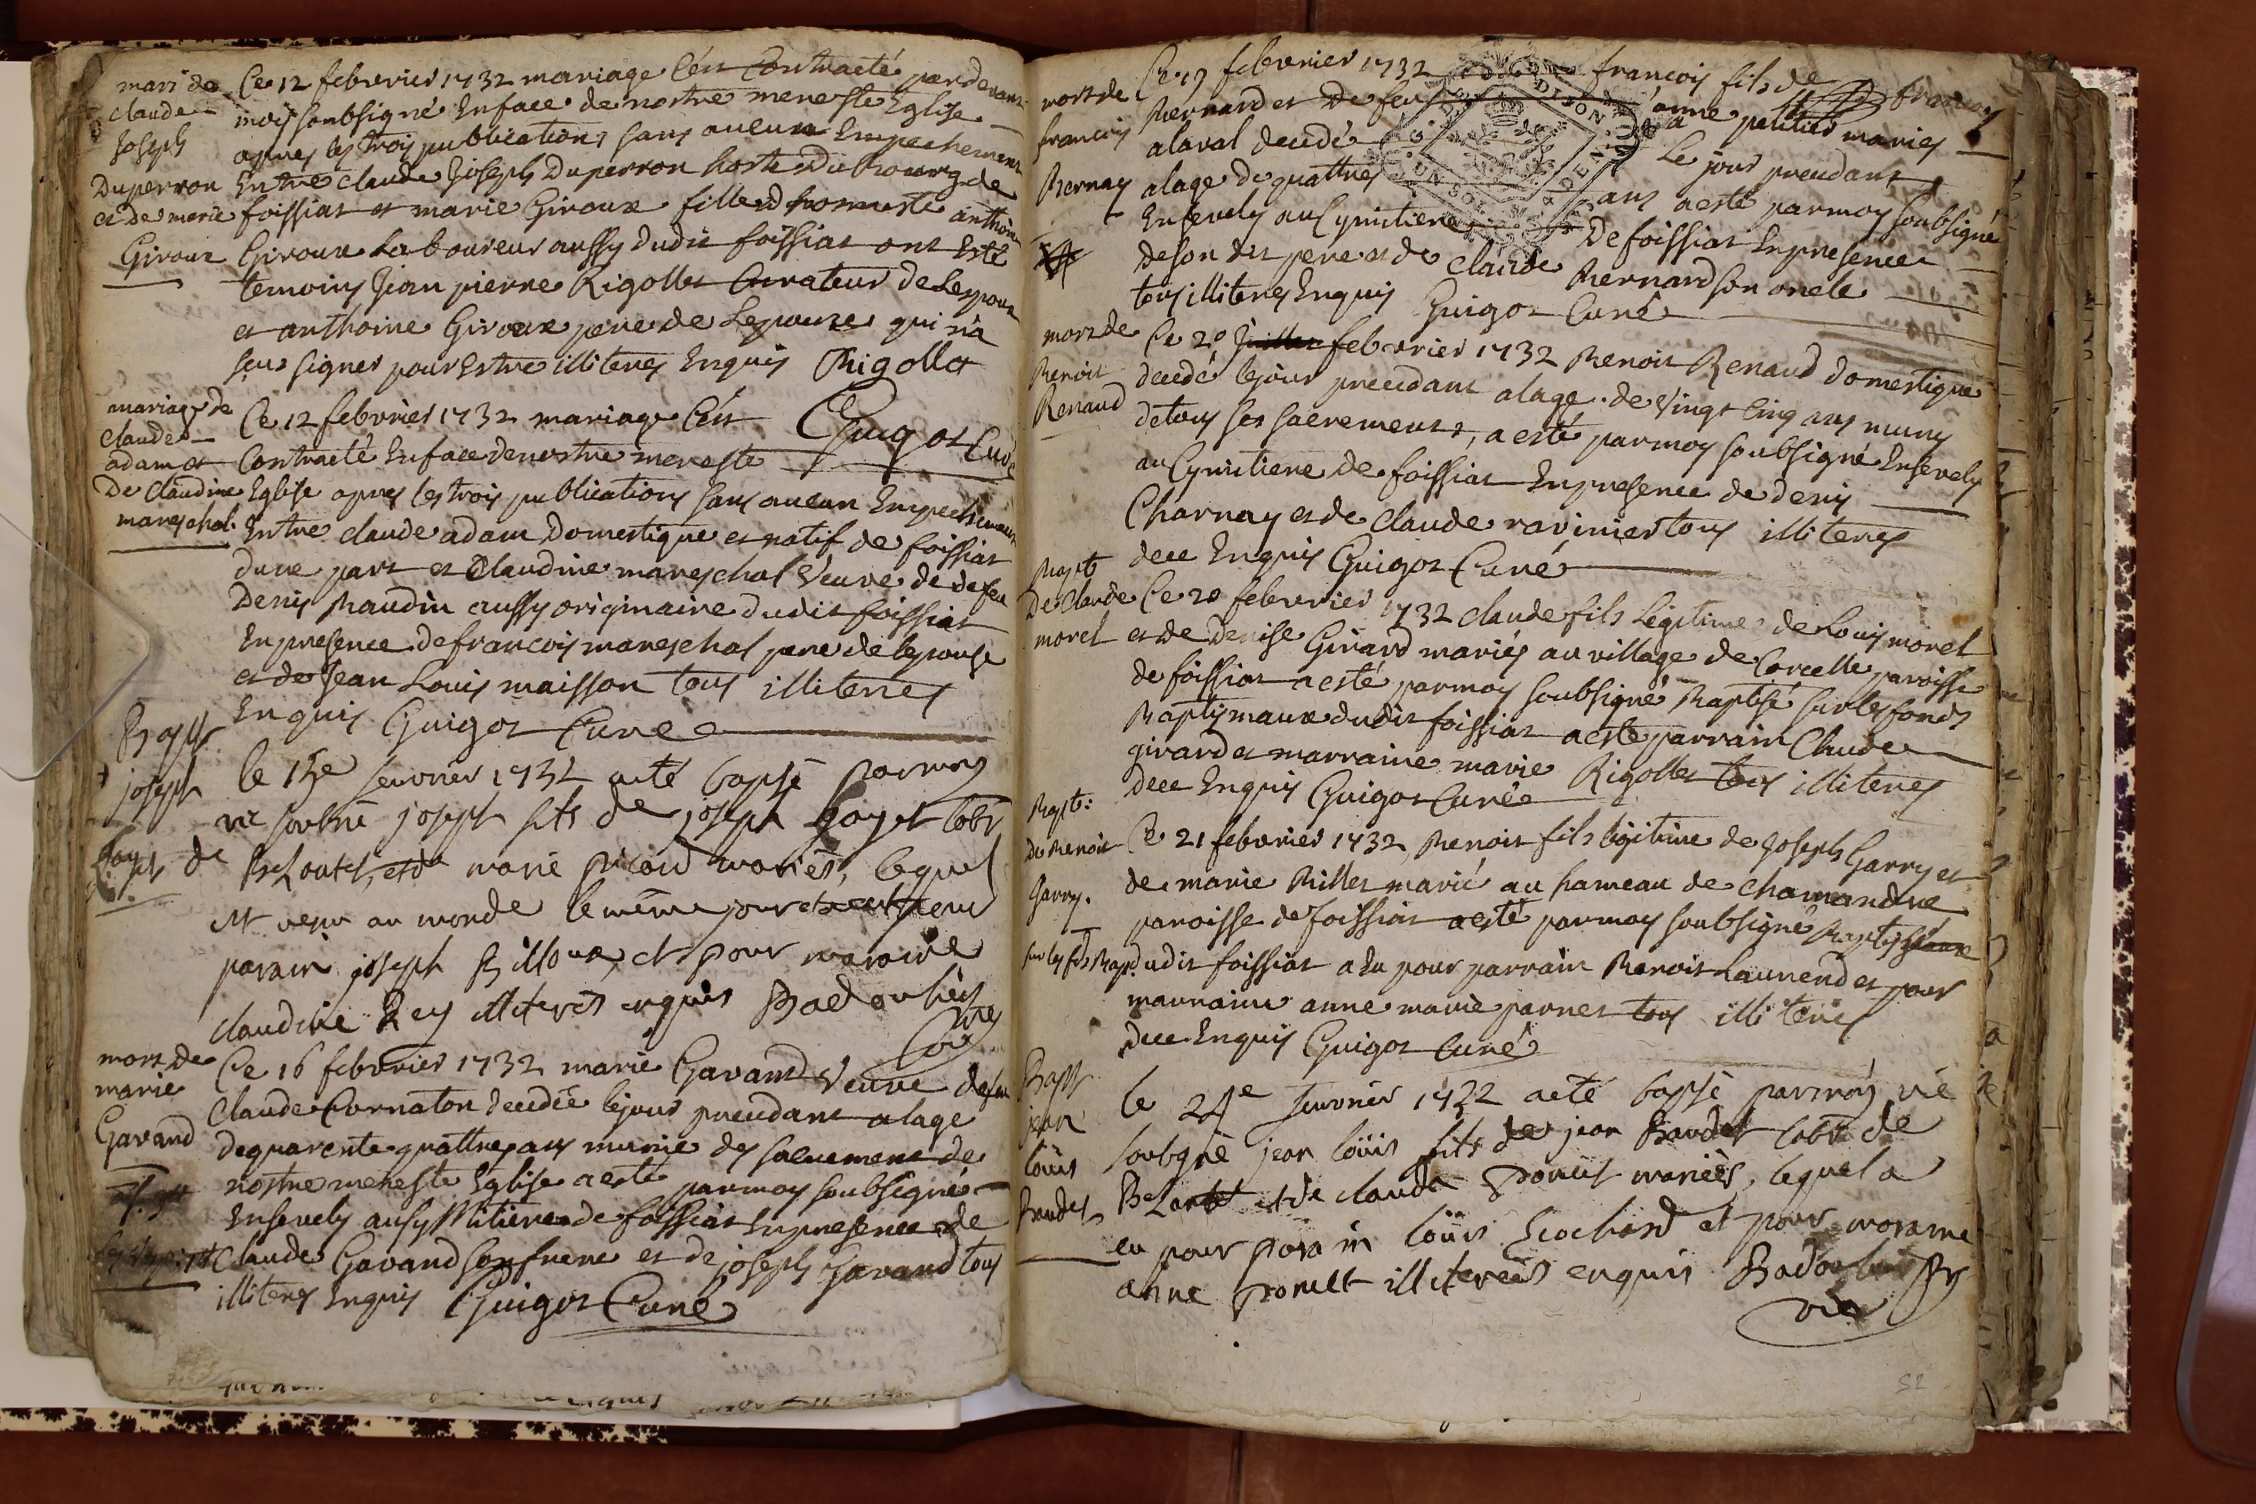 mari de
claude
Joseph
Duperron
et de marie
Giroux
Ce 12 febvrier 1732 mariage C'est Contracté pardevant
moy soubsigné Enface de nostre mere ste Eglise
apres les trois publications sans aucun Empechement
Entre claude Joseph Duperron hoste du bourg de
foissiat et marie Giroux fille d'honneste anthoine
Giroux Laboureur aussy dudit foissiat ont Esté
temoins Jean pierre Rigollet Curateur de Lepoux
et anthoine Giroux pere de Lepouze qui n'a
seu signer pour Estre illiteres Enquis Rigollet
Guigot Curé
mariage de
claude
adam et
De Claudine
mareschal
Ce 12 febvrier 1732 mariage C'est
Contracté Enface de nostre mere ste
Eglise apres les trois publications sans aucun Empechement
Entre claude adam Domestique et natif de foissiat
dune part et Claudine mareschal Veuve de defeu
Denis Baudin aussy originaire dudit foissiat
En presence de francois mareschal pere de lepouse
et de Jean Louis maisson tous illiteres
Enquis Guigot Curé
Bapt
joseph
le 15e fevrier 1732 a eté baptsé par moy
vre soubné joseph fils de joseph goyet labr
de Bezoutel, et de marie picard mariés, lequel
est venu au monde le même jour et a eu pour
parain joseph Billoux, et pour maraine
claudine Rey illiterés enquis Badoulier
vre
mort de
marie
Gavand
Ce 16 febvrier 1732 marie Gavand Veuve defeu
Claude Cornaton decedée lejour precedant alage
de quarente quattre ans munie des sacrements de
nostre mere ste Eglise a esté parmoy soubsigné
Ensevely au Cymitiere de foissiat En presence de
Claude Gavand son frere et de joseph Gavand tous
illiteres Enquis Guigot Curé
mort de
francois
Bernard
Ce 19 febvrier 1732 francois fils de francois
Bernard et De feu anne petitier mariés
alaval decedé Le jour precedant
alage de quattre ans a esté parmoy soubsigné
Ensevely au Cymitiere De foissiat Enpresence
de son dit pere et de Claude Bernard son oncle
tous illiteres Enquis Guigot Curé
mort de
Benoit
Renaud
Ce 20 Juillet febvrier 1732 Benoit Renaud domestique
decedé lejour precedant alage de vingt cinq ans muny
de tous ses sacrements, a esté parmoy soubsigné Ensevely
au Cymitiere de foissiat En presence de denis
Charnay et de claude ravinier tous illiteres
dece Enquis Guigot Curé
Bapt
De claude
morel
Ce 20 febvrier 1732 claude fils Légitime de Louis morel
et de Denise Girard mariés au village de Corcelle paroisse
de foissiat a esté parmoy soubsigné Baptisé sur les fonds
Baptismaux dudit foissiat a esté parrain Claude
girard et marraine marie Rigollet tous illiteres
dece Enquis Guigot Curé
Bapt:
De Benoit
Garry.
Ce 21 febvrier 1732, Benoit fils légitime de Joseph Garry et
de marie Billet marié au hameau de chamandre
paroisse de foissiat a esté parmoy soubsigné Baptisé
sur les fds Bap. dudit foissiat a Eu pour parrain Benoit Laurend et pour
marraine anne marie parnet tous illiteres
Dece Enquis Guigot Curé
Bapt
jean
loüis
Baudet
le 24e fevrier 1732 a eté baptsé par moy vre
soubgné jean loüis fils de jean Baudet labr de
Bezoutel et de claude ponet mariées, lequel a
eu pour parain loüis Cochard et pour maraine
anne ponet illiterées enquis Badoulier Bz
vre
52